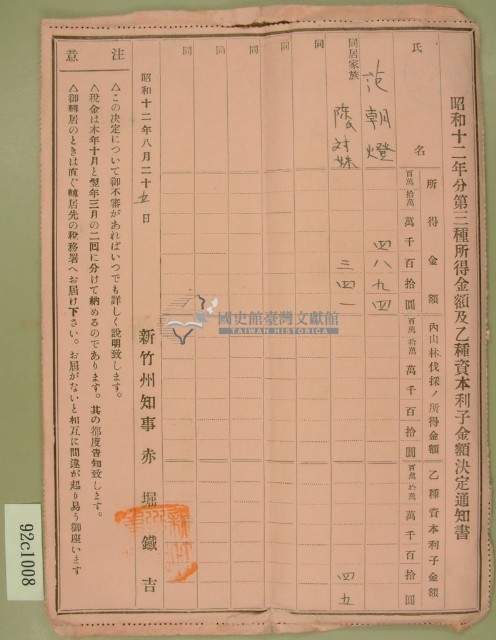 昭和十二年分第三種所得金額及乙種資本利子金額決定通知書
氏名
所得金額
內山林伐採ノ所得金額
乙種資本利子金額
百萬 拾萬 萬 千 百 拾 圓
百萬 拾萬 萬 千 百 拾 圓
百萬 拾萬 萬 千 百 拾 圓
范朝燈
四八九四
同居家族
陳對妹
三四一
四五
同
同
同
同
同
昭和十二年八月二十五日
新竹州知事赤堀鐵吉
注意
△この決定について御不審があればいつでも詳しく說明致します。
△稅金は本年十月と翌年三月の二回に分けて納めるのであります。其の都度告知致します。
△御轉居のときは直ぐ轉居先の稅務署へお届け下さい。お届がないと相互に間違が起り易う御座います
國史館臺灣文獻館
TAIWAN HISTORICA
92c1008